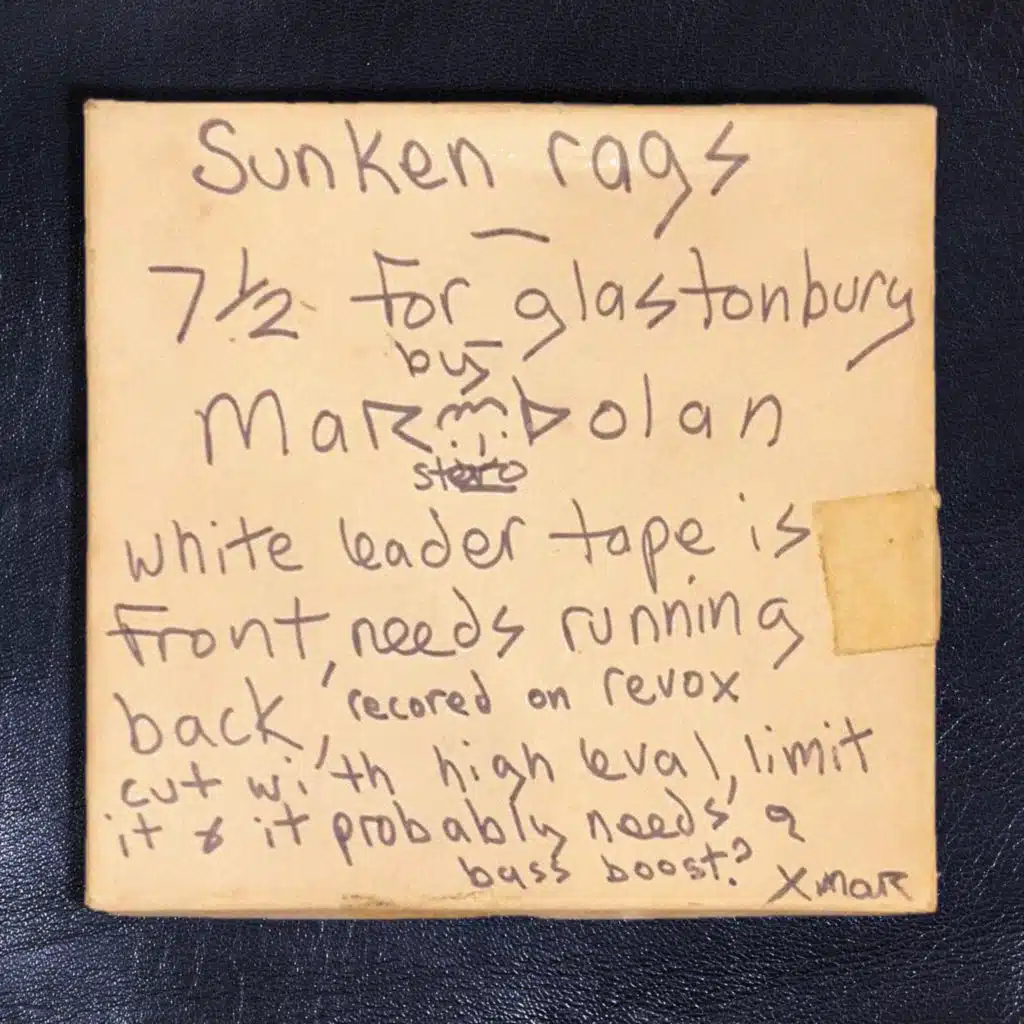 Sunken rags
7 1/2 for glastonbury
by
Marc bolan
white leader tape is
Front, needs running
back, recored on revox
cut with high leval, limit
it & it probably needs a
bass boost?
x marc